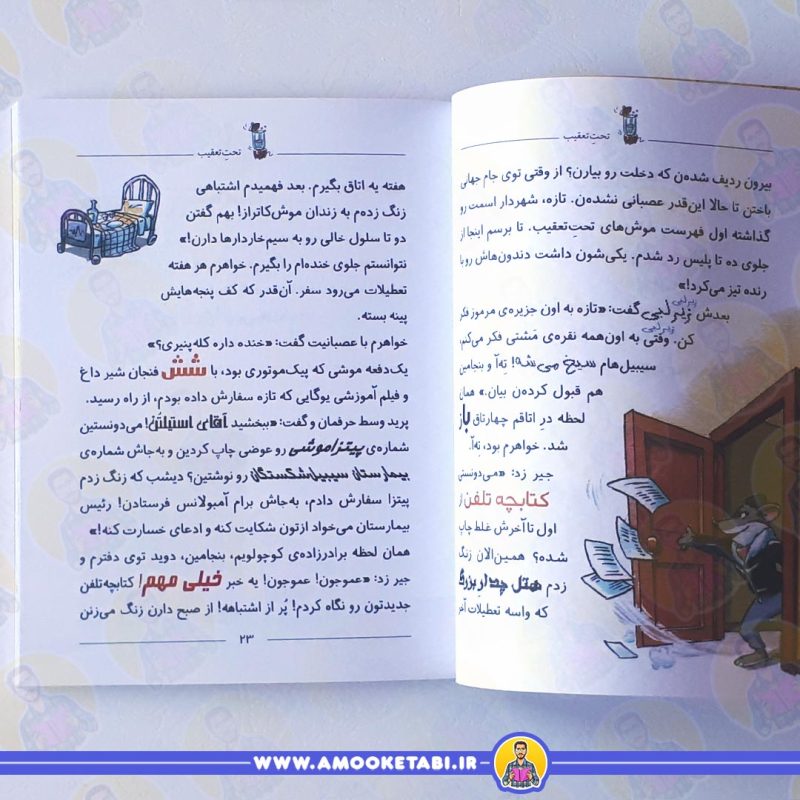 تحتِ تعقیب
بیرون ردیف شده‌ن که دخلت رو بیارن؟ از وقتی توی جام جهانی
باختن تا حالا این‌قدر عصبانی نشده‌ن. تازه، شهردار اسمت رو
گذاشته اول فهرست موش‌های تحتِ‌تعقیب. تا برسم اینجا از
جلوی ده تا پلیس رد شدم. یکی‌شون داشت دندون‌هاش رو با
رنده تیز می‌کرد!»
بعدش زیرلبی گفت: «تازه به اون جزیره‌ی مرموز فکر
کن. وقتی به اون‌همه نقره‌ی مَشتی فکر می‌کنم،
سیبیل‌هام سیخ می‌شه! ته‌آ و بنجامین
هم قبول کرده‌ن بیان.» همان
لحظه در اتاقم چهارتاق باز
شد. خواهرم بود، ته‌آ.
جیر زد: «می‌دونستی
کتابچه تلفن از
اول تا آخرش غلط چاپ
شده؟ همین‌الان زنگ
زدم هتل چدار بزرگ
که واسه تعطیلات آخر
تحتِ تعقیب
هفته یه اتاق بگیرم. بعد فهمیدم اشتباهی
زنگ زده‌م به زندان موش‌کاتراز! بهم گفتن
دو تا سلول خالی رو به سیم‌خاردارها دارن!»
نتوانستم جلوی خنده‌ام را بگیرم. خواهرم هر هفته
تعطیلات می‌رود سفر. آن‌قدر که کف پنجه‌هایش
پینه بسته.
خواهرم با عصبانیت گفت: «خنده داره کله‌پنیری؟»
یک‌دفعه موشی که پیک‌موتوری بود، با شش فنجان شیر داغ
و فیلم آموزشی یوگایی که تازه سفارش داده بودم، از راه رسید.
پرید وسط حرفمان و گفت: «ببخشید آقای استیلتُن! می‌دونستین
شماره‌ی پیتزاموشی رو عوضی چاپ کردین و به‌جاش شماره‌ی
بیمارستان سیبیل‌شکستگان رو نوشتین؟ دیشب که زنگ زدم
پیتزا سفارش دادم، به‌جاش برام آمبولانس فرستادن! رئیس
بیمارستان می‌خواد ازتون شکایت کنه و ادعای خسارت کنه!»
همان لحظه برادرزاده‌ی کوچولویم، بنجامین، دوید توی دفترم و
جیر زد: «عموجون! عموجون! یه خبر خیلی مهم! کتابچه‌تلفن
جدیدتون رو نگاه کردم! پُر از اشتباهه! از صبح دارن زنگ می‌زنن
۲۳
WWW.AMOOKETABI.IR